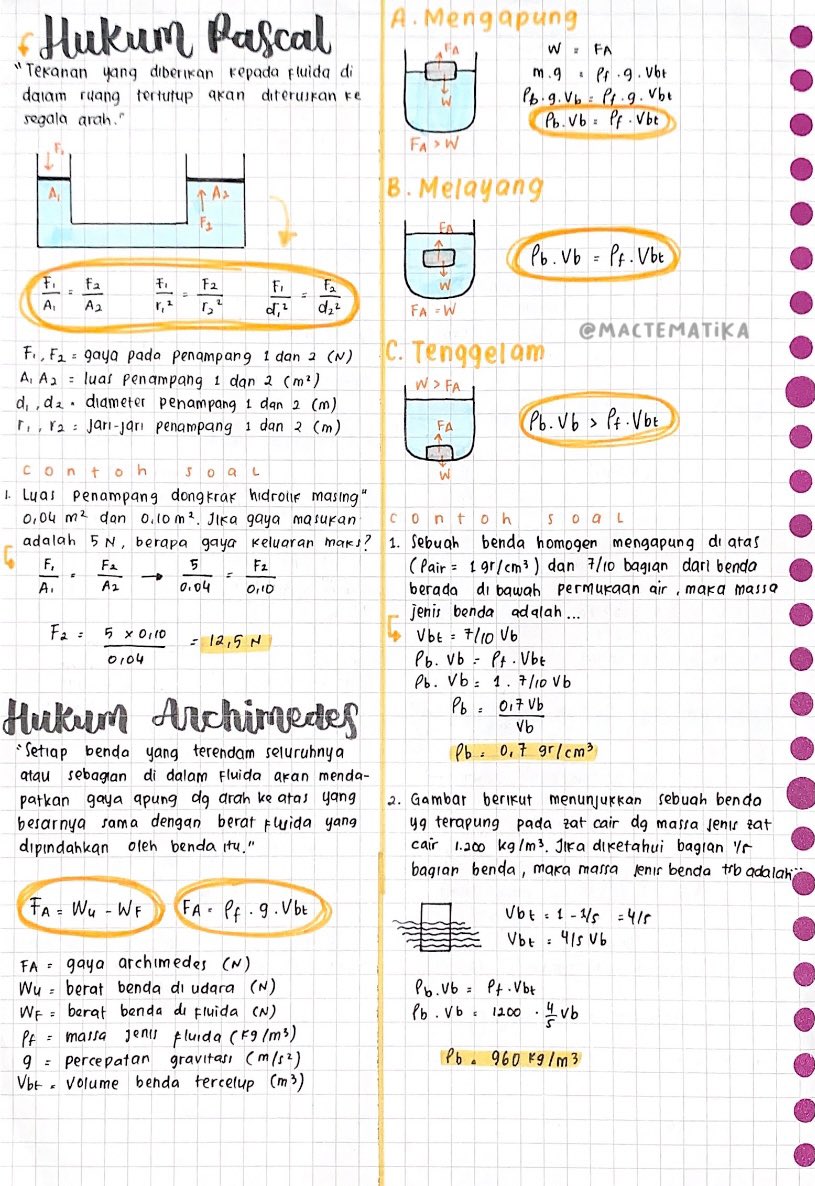 Hukum Pascal
"Tekanan yang diberikan kepada fluida di
dalam ruang tertutup akan diteruskan ke
segala arah."
F₁
A₁
A2
F2
F₁/A₁ = F2/A2
F₁/r₁² = F2/r2²
F₁/d₁² = F2/d2²
F₁, F2 = gaya pada penampang 1 dan 2 (N)
A₁ A2 = luas penampang 1 dan 2 (m²)
d₁, d2 = diameter penampang 1 dan 2 (m)
r₁, r2 = jari-jari penampang 1 dan 2 (m)
contoh soal
1. Luas penampang dongkrak hidrolik masing"
0,04 m² dan 0,10 m². Jika gaya masukan
adalah 5 N, berapa gaya keluaran maks?
F₁/A₁ = F2/A2 → 5/0.04 = F2/0,10
F2 = 5 x 0,10/0,04 = 12,5 N
Hukum Archimedes
"Setiap benda yang terendam seluruhnya
atau sebagian di dalam fluida akan menda-
patkan gaya apung dg arah ke atas yang
besarnya sama dengan berat fluida yang
dipindahkan oleh benda itu."
FA = Wu - WF
FA = ρf . g . Vbt
FA = gaya archimedes (N)
Wu = berat benda di udara (N)
WF = berat benda di fluida (N)
ρf = massa jenis fluida (kg/m³)
g = percepatan gravitasi (m/s²)
Vbt = Volume benda tercelup (m³)
A. Mengapung
FA
W
FA > W
W = FA
m.g = ρf . g . Vbt
ρb . g . Vb = ρf . g . Vbt
ρb . Vb = ρf . Vbt
B. Melayang
FA
W
FA = W
ρb . Vb = ρf . Vbt
@MACTEMATiKA
C. Tenggelam
W > FA
FA
W
ρb . Vb > ρf . Vbt
contoh soal
1. Sebuah benda homogen mengapung di atas
(ρair = 1 gr/cm³) dan 7/10 bagian dari benda
berada di bawah permukaan air, maka massa
jenis benda adalah...
Vbt = 7/10 Vb
ρb . Vb = ρf . Vbt
ρb . Vb = 1 . 7/10 Vb
ρb = 0,7 Vb/Vb
ρb = 0,7 gr/cm³
2. Gambar berikut menunjukkan sebuah benda
yg terapung pada zat cair dg massa jenis zat
cair 1.200 kg/m³. Jika diketahui bagian 1/5
bagian benda, maka massa jenis benda tsb adalah..
Vbt = 1 - 1/5 = 4/5
Vbt = 4/5 Vb
ρb . Vb = ρf . Vbt
ρb . Vb = 1200 . 4/5 Vb
ρb = 960 kg/m³